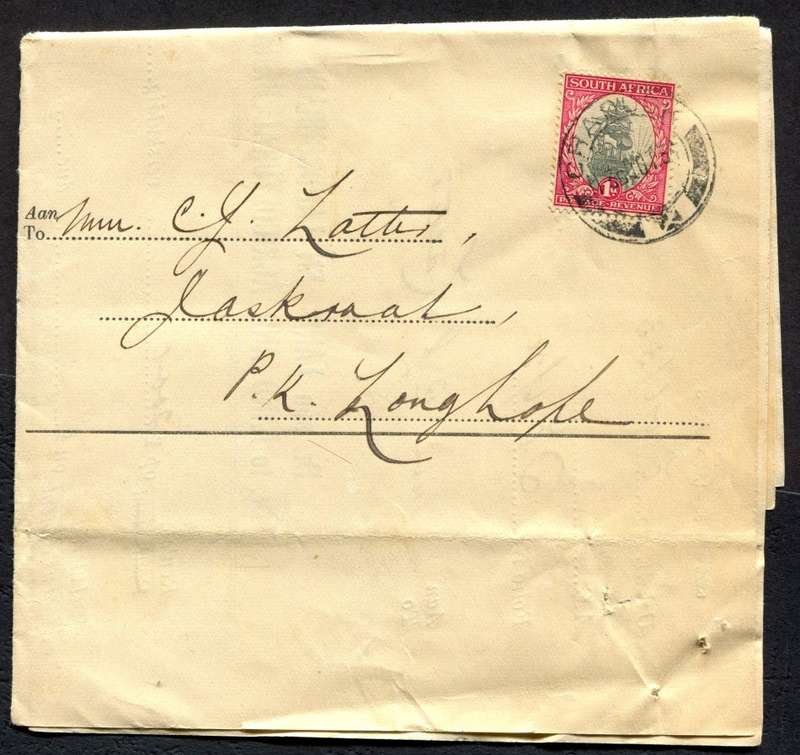 SOUTH AFRICA
1D
POSTAGE-REVENUE
Aan
To Mnr. C. J. Lotter,
Jaskraal,
P. K. Longhope